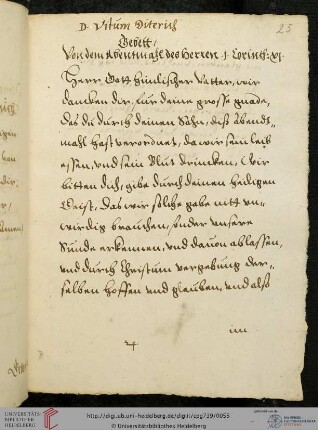 D. Vitum Diterich
25
Gebett /
Von dem Abentmahl des Herren 1 Corinth: XI.
Herr Gott himlischer Vatter, wir
dancken dir, fur deine grosse gnade,
das du durch deinen Sohn, diß Abendt-
mahl hast verordnet, da wir sein leib
essen, vnd sein Blut drincken, Wir
bitten dich, gibe durch deinen heiligen
Geist, das wir solche gabe nitt vn-
wirdig brauchen, sonder vnsere
Sunde erkennen, vnd dauon ablassen,
vnd durch Christum vergebung der-
selben hoffen vnd glauben, vnd also
im
UNIVERSITÄTS-
BIBLIOTHEK
HEIDELBERG
http://digi.ub.uni-heidelberg.de/diglit/cpg729/0055
© Universitätsbibliothek Heidelberg